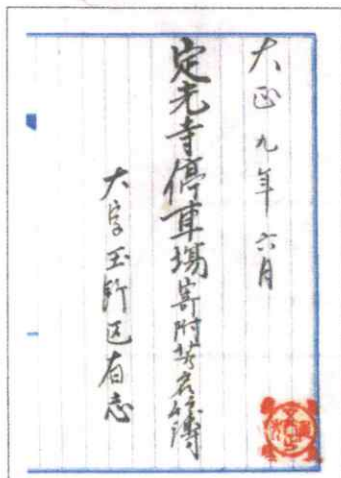 大正九年六月
定光寺停車場寄附芳名簿
大字玉野区有志